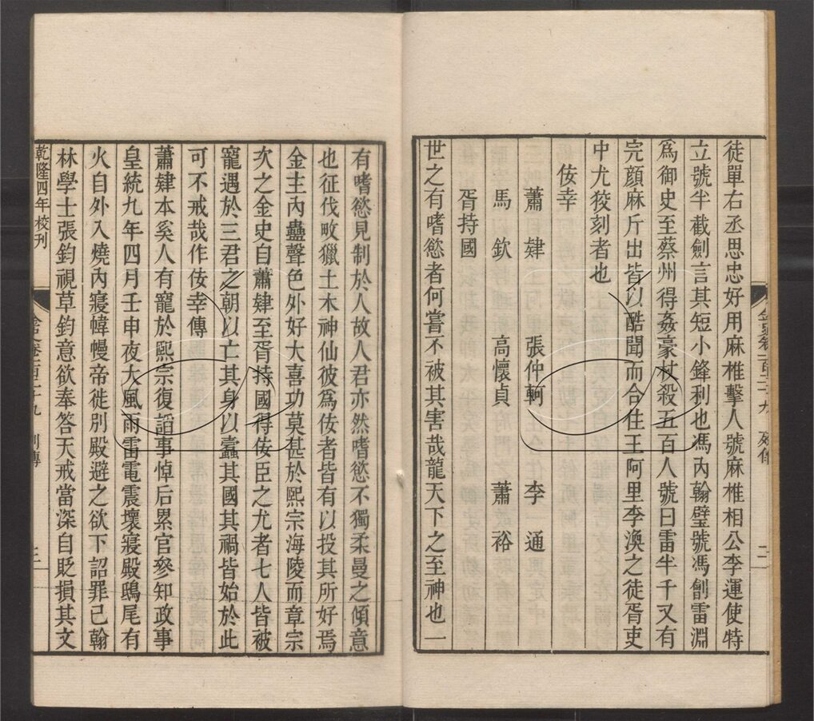 徒單右丞思忠好用麻椎擊人號麻椎相公李運使特
立號半截劍言其短小鋒利也馮內翰璧號馮劊雷淵
爲御史至蔡州得姦豪杖殺五百人號曰雷半千又有
完顔麻斤出皆以酷聞而合住王阿里李渙之徒胥吏
中尤狡刻者也
佞幸
蕭肄 張仲軻 李通
馬欽 高懷貞 蕭裕
胥持國
世之有嗜慾者何嘗不被其害哉龍天下之至神也一
金史卷一百二十九 列傳 二
有嗜慾見制於人故人君亦然嗜慾不獨柔曼之傾意
也征伐畋獵土木神仙彼爲佞者皆有以投其所好焉
金主內蠱聲色外好大喜功莫甚於熙宗海陵而章宗
次之金史自蕭肄至胥持國得佞臣之尤者七人皆被
寵遇於三君之朝以亡其身以蠹其國其禍皆始於此
可不戒哉作佞幸傳
蕭肄本奚人有寵於熙宗復諂事悼后累官參知政事
皇統九年四月壬申夜大風雨雷電震壞寢殿鴟尾有
火自外入燒內寢幃幔帝徙別殿避之欲下詔罪己翰
林學士張鈞視草鈞意欲奉答天戒當深自貶損其文
乾隆四年校刊 金史卷一百二十九 列傳 三